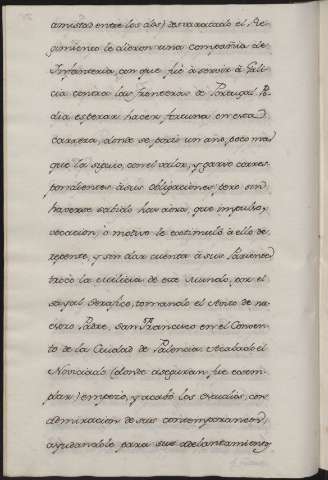 amistad entre los dos) desvaratado el Re-
gimiento le dieron una compañia de
Infanteria, con que fuè à servir à Gali-
cia contra las fronteras de Portugal. Po-
dia esperar hacer fortuna en esta
carrera, donde se pasò un año, poco mas
que la siguio, con el valor, y garvo corres-
pondientes à sus obligaciones, pero sin
haverse sabido hasta aora, que impulso,
vocacion, ò motivo le estimulò à ello de
repente, y sin dar cuenta à sus Parientes
trocò la Milicia de este Mundo, por el
sayal Serafico, tomando el Avito de nu-
estro Padre, San Francisco en el Conven-
to de la Ciudad de Palencia. Acabado el
Noviciado (donde aseguran fue exem-
plar) empezò, y acabò los estudios, con
admiracion de sus contemporaneos,
ayudandole para sus adelantamientos